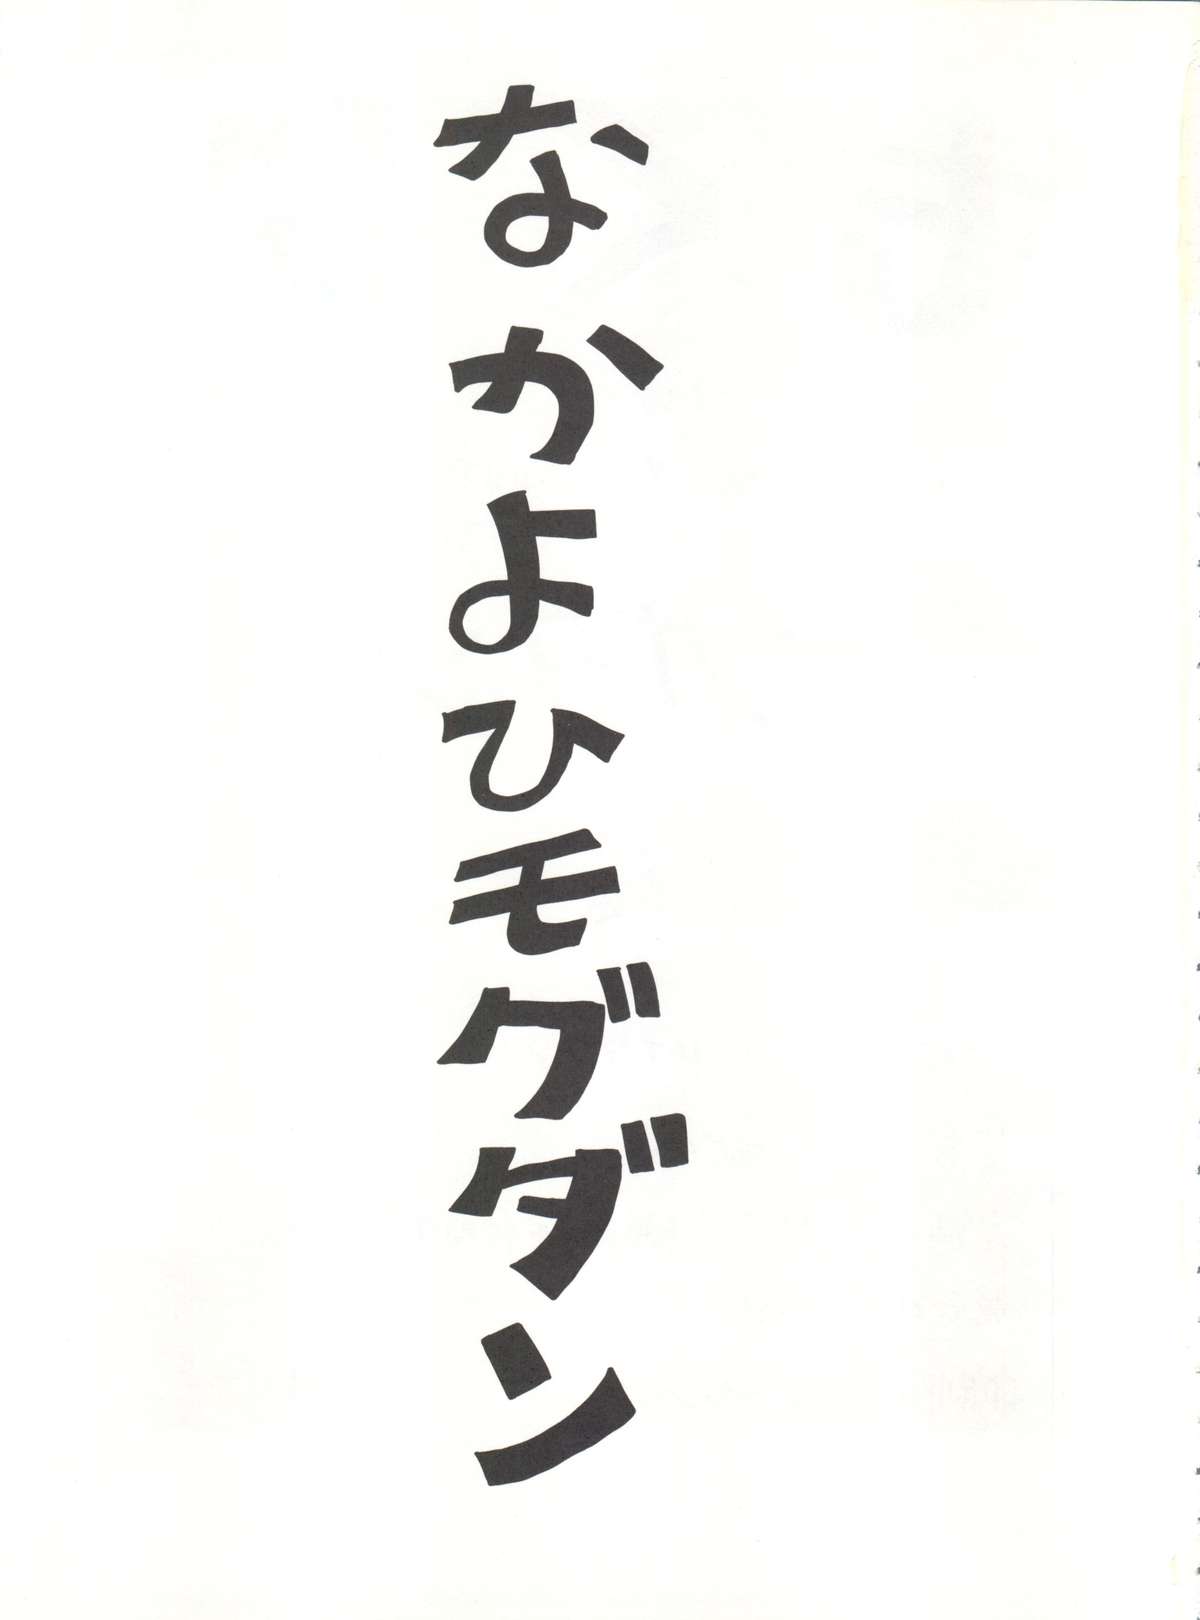 なかよひモグダン